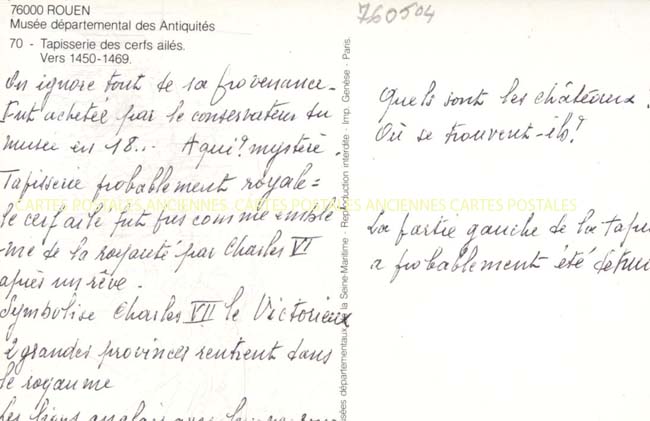 76000 ROUEN
Musée départemental des Antiquités
70 - Tapisserie des cerfs ailés.
Vers 1450-1469.
On ignore tout de sa provenance.
Fut achetée par le conservateur du
musée en 18... A qui? mystère.
Tapisserie probablement royale =
le cerf ailé fut pris comme emblè
-me de la royauté par Charles VI
après un rêve.
Symbolise Charles VII le Victorieux
2 grandes provinces rentrent dans
le royaume
Les lions anglais avec
760504
Quels sont les châteaux?
Où se trouvent-ils?
La partie gauche de la
a probablement été
CARTES POSTALES ANCIENNES CARTES POSTALES ANCIENNES CARTES POSTALES
départementaux la Seine-Maritime - Reproduction interdite - Imp. Genèse - Paris.